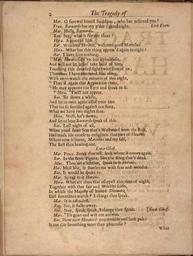 2 The Tragedy of
Mar. O farwel honest Souldier, who has relieved you?
Fran. Barnardo has my place, good night. Exit Fran.
Mar. Holla, Barnardo.
Bar. Say, what is Horatio there?
Hor. A piece of him.
Bar. Welcome Horatio, welcome good Marcellus.
Hor. What has this thing appear'd again to night?
Bar. I have seen nothing.
Mar. Horatio says 'tis but
And will not let belief take hold of him,
Touching this dreaded sight twice seen of us,
Therefore I have intreated him along
With us to watch the minutes of this night,
That if again this apparition come
He may approve our Eyes and speak to it.
Hor. 'Twill not appear.
Bar. Sit down a while,
And let us once again assail your ears
That are so fortified against our story,
What we have two nights seen.
Hor. Well, sit we down,
And let us hear Barnardo speak of this.
Bar. Last night of all,
When yond same Star that's Westward from the Pole,
Had made his course to
Where now it burns, Marcellus and my self,
The Bell then beating one.
Enter Ghost.
Mar. Peace, break thee off, look where it comes again.
Bar. In the same figure, like the King that's dead.
Mar. Thou art a scholar, speak to it Horatio.
Hor. Most like, it
Bar. It would be spoke to.
Mar. Speak to it Horatio.
Hor. What art thou that usurp'st this time of night,
Together with that fair and Warlike form,
In which the Majesty of buried Denmark
Did sometimes march? I charge thee speak.
Mar. It is offended.
Bar. See, it stalks away.
Hor. Stay, speak, speak, I charge thee speak. Exit Ghost.
Mar. 'Tis gone and will not answer.
Bar. How now Horatio? you tremble and look pale:
Is not this something more than phantasie?
What